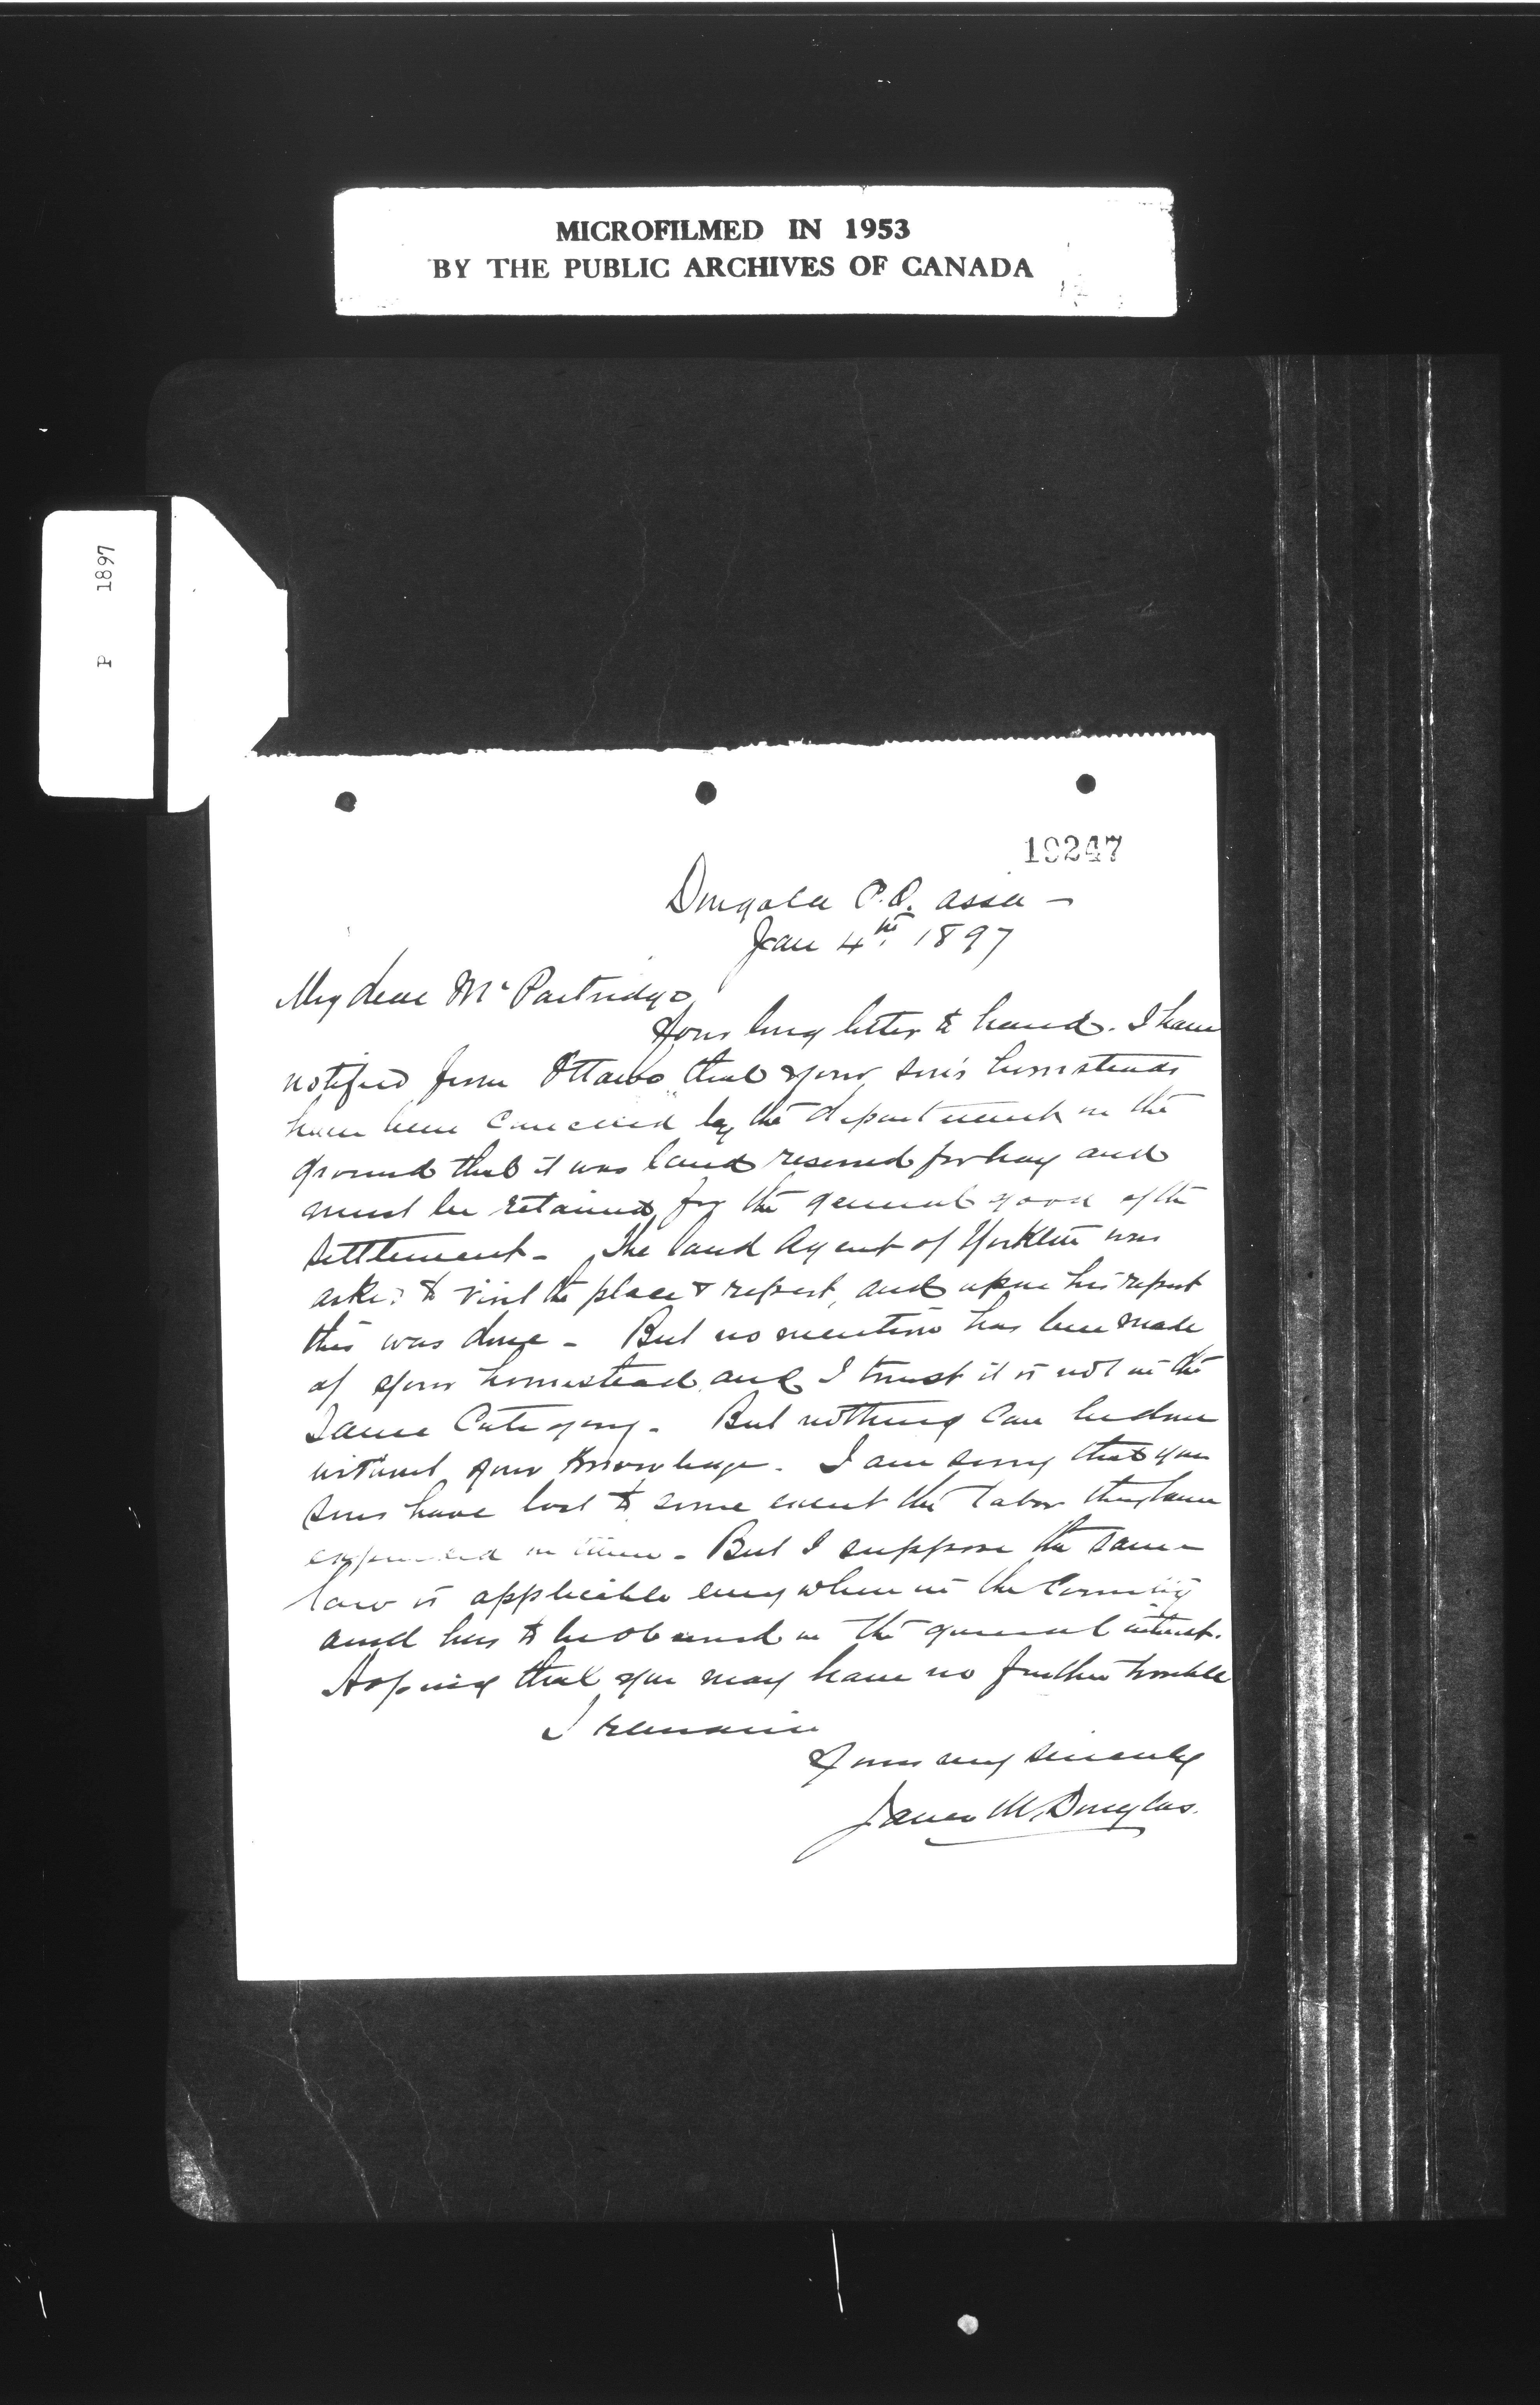 MICROFILMED IN 1953
BY THE PUBLIC ARCHIVES OF CANADA
P 1897
19247
Dongola P.O. Assa —
Jan 4th 1897
My dear Mr Partridge
Your long letter to hand. I have
notified from Ottawa that your son's homesteads
have been cancelled by the department on the
ground that it was land reserved for hay and
must be retained for the general good of the
settlement - The land Agent of Yorkton was
asked to visit the place & report, and upon his report
this was done - But no mention has been made
of your homestead and I trust it is not in the
same Category - But nothing can be done
without your knowledge. I am sorry that your
sons have lost to some extent the labor they have
expended on them - But I suppose the same
law is applicable every where in the Country
and has to be observed in the general interest.
Hoping that you may have no further trouble
I remain
Yours very sincerely
James M. Douglas.